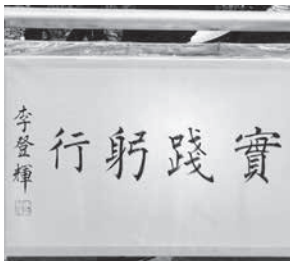 實踐躬行
李登輝